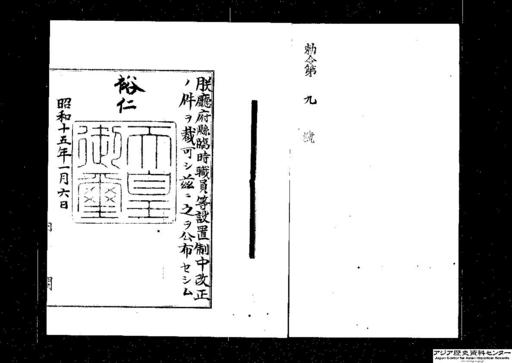 勅令第九號
朕廳府縣臨時職員等設置制中改正
ノ件ヲ裁可シ茲ニ之ヲ公布セシム
裕仁
天皇御璽
昭和十五年一月六日
内閣
アジア歴史資料センター
Japan Center for Asian Historical Records